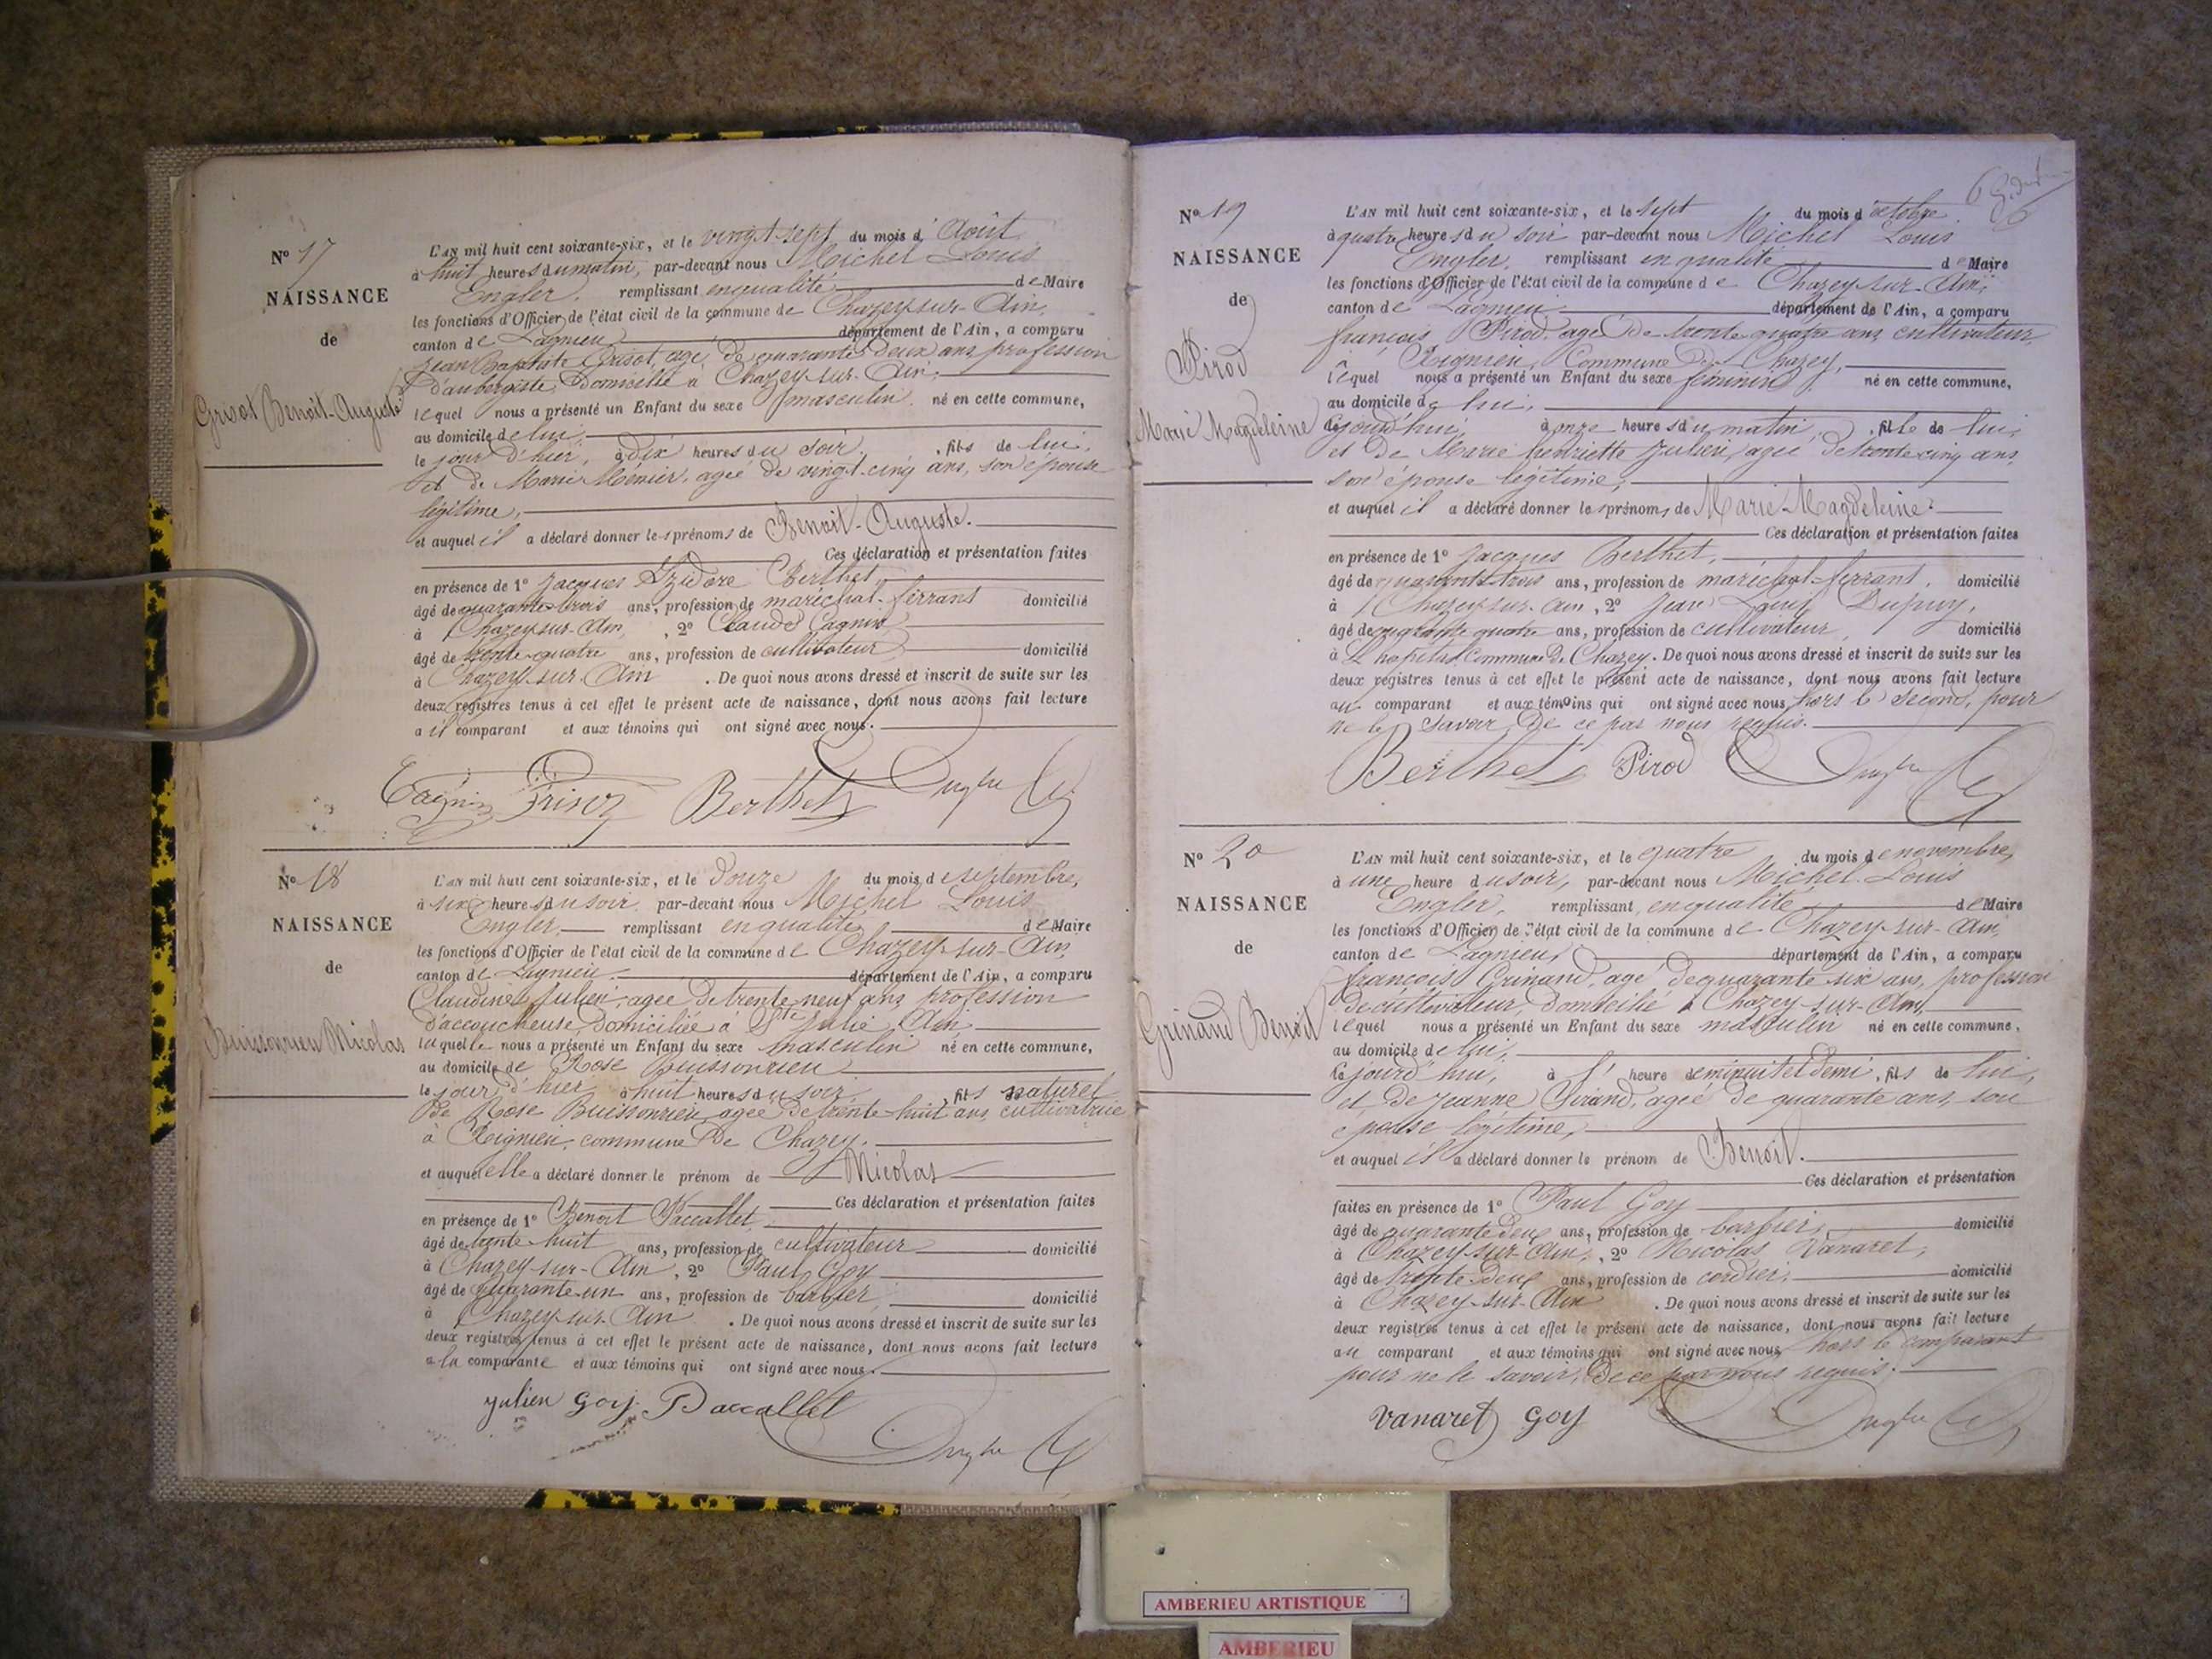 Nº 17
NAISSANCE
de
Grisot Benoit-Auguste
L'AN mil huit cent soixante-six, et le vingt-sept du mois d'Août
à huit heures du matin, par-devant nous Michel Louis
Engler, remplissant en qualité de Maire
les fonctions d'Officier de l'état civil de la commune de Chazey-sur-Ain,
canton de Lagnieu département de l'Ain, a comparu
Jean Baptiste Grisot, agé de quarante deux ans profession
d'aubergiste, Domicilié à Chazey-sur-Ain,
lequel nous a présenté un Enfant du sexe masculin, né en cette commune,
au domicile de lui,
le jour d'hier, à dix heures du soir, fils de lui,
et de Marie Ménier, agée de vingt-cinq ans, son épouse
légitime,
et auquel il a déclaré donner les prénoms de Benoit-Auguste.
Ces déclaration et présentation faites
en présence de 1º Jacques Izidore Berthet,
âgé de quarante-trois ans, profession de maréchal-ferrant domicilié
à Chazey-sur-Ain, 2º Claude Cagnin
âgé de trente-quatre ans, profession de cultivateur domicilié
à Chazey-sur-Ain. De quoi nous avons dressé et inscrit de suite sur les
deux registres tenus à cet effet le présent acte de naissance, dont nous avons fait lecture
a il comparant et aux témoins qui ont signé avec nous.
Cagnin Grisot Berthet Engler
Nº 18
NAISSANCE
de
Buissonrieu Nicolas
L'AN mil huit cent soixante-six, et le Douze du mois de septembre,
à six heures du soir par-devant nous Michel Louis
Engler, remplissant en qualité de Maire
les fonctions d'Officier de l'état civil de la commune de Chazey-sur-Ain,
canton de Lagnieu. département de l'Ain, a comparu
Claudine Julien, agée de trente neuf ans, profession
d'accoucheuse, Domiciliée à Ste Julie, Ain,
laquelle nous a présenté un Enfant du sexe masculin né en cette commune,
au domicile de Rose Buissonrieu
le jour d'hier à huit heures du soir, fils naturel
De Rose Buissonrieu agée de trente-huit ans, cultivatrice
à Rignieu, commune De Chazey.
et auquel elle a déclaré donner le prénom de Nicolas
Ces déclaration et présentation faites
en présence de 1º Benoit Paccallet,
âgé de trente huit ans, profession de cultivateur domicilié
à Chazey-sur-Ain, 2º Paul Goy
âgé de quarante-un ans, profession de barbier, domicilié
à Chazey-sur-Ain. De quoi nous avons dressé et inscrit de suite sur les
deux registres tenus à cet effet le présent acte de naissance, dont nous avons fait lecture
a la comparante et aux témoins qui ont signé avec nous.
Julien Goy Paccallet
Engler
Nº 19
NAISSANCE
de
Pirod
Marie Magdeleine
L'AN mil huit cent soixante-six, et le sept du mois d'octobre
à quatre heures du soir par-devant nous Michel Louis
Engler, remplissant en qualité de Maire
les fonctions d'Officier de l'état civil de la commune de Chazey-sur-Ain,
canton de Lagnieu département de l'Ain, a comparu
françois Pirod, agé de trente quatre ans, cultivateur
à Rignieu, Commune De Chazey,
lequel nous a présenté un Enfant du sexe féminin né en cette commune,
au domicile de lui,
cejourd'hui, à onze heures du matin, fille de lui,
et De Marie henriette Julien, agée de trente cinq ans,
son épouse légitime,
et auquel il a déclaré donner les prénoms de Marie-Magdeleine
Ces déclaration et présentation faites
en présence de 1º Jacques Berthet,
âgé de quarante-trois ans, profession de maréchal-ferrant, domicilié
à Chazey-sur-Ain, 2º Jean Louis Dupuy,
âgé de quarante quatre ans, profession de cultivateur, domicilié
à L'hopital Commune De Chazey. De quoi nous avons dressé et inscrit de suite sur les
deux registres tenus à cet effet le présent acte de naissance, dont nous avons fait lecture
au comparant et aux témoins qui ont signé avec nous, hors le second, pour
ne le savoir De ce par nous requis.
Berthet Pirod Engler
Nº 20
NAISSANCE
de
Grinand Benoit
L'AN mil huit cent soixante-six, et le quatre du mois de novembre,
à une heure du soir, par-devant nous Michel Louis
Engler, remplissant en qualité de Maire
les fonctions d'Officier de l'état civil de la commune de Chazey-sur-Ain,
canton de Lagnieu, département de l'Ain, a comparu
françois Grinand, agé de quarante six ans, profession
de cultivateur, domicilié à Chazey-sur-Ain,
lequel nous a présenté un Enfant du sexe masculin né en cette commune,
au domicile de lui,
cejourd'hui, à l' heure de minuit et demi, fils de lui,
et De Jeanne Sirand, agée de quarante ans, son
épouse légitime,
et auquel il a déclaré donner le prénom de Benoit.
Ces déclaration et présentation
faites en présence de 1º Paul Goy
âgé de quarante deux ans, profession de barbier, domicilié
à Chazey-sur-Ain, 2º Nicolas Vanaret,
âgé de trente-deux ans, profession de cordier, domicilié
à Chazey-sur-Ain. De quoi nous avons dressé et inscrit de suite sur les
deux registres tenus à cet effet le présent acte de naissance, dont nous avons fait lecture
au comparant et aux témoins qui ont signé avec nous, hors le comparant
pour ne le savoir, De ce par nous requis.
Vanaret Goy Engler
AMBERIEU ARTISTIQUE
AMBERIEU